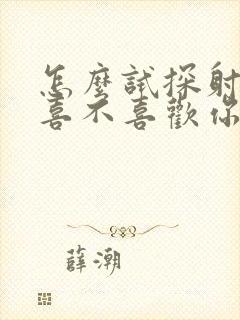 怎麼試探射
喜不喜歡你
薛潮